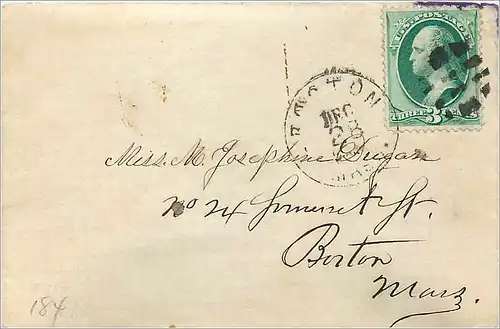 U.S. POSTAGE
THREE 3 CENTS
BOSTON
DEC
MASS
Miss. M. Josephine Dugan
No 24 Somerset St.
Boston
Mass.
184